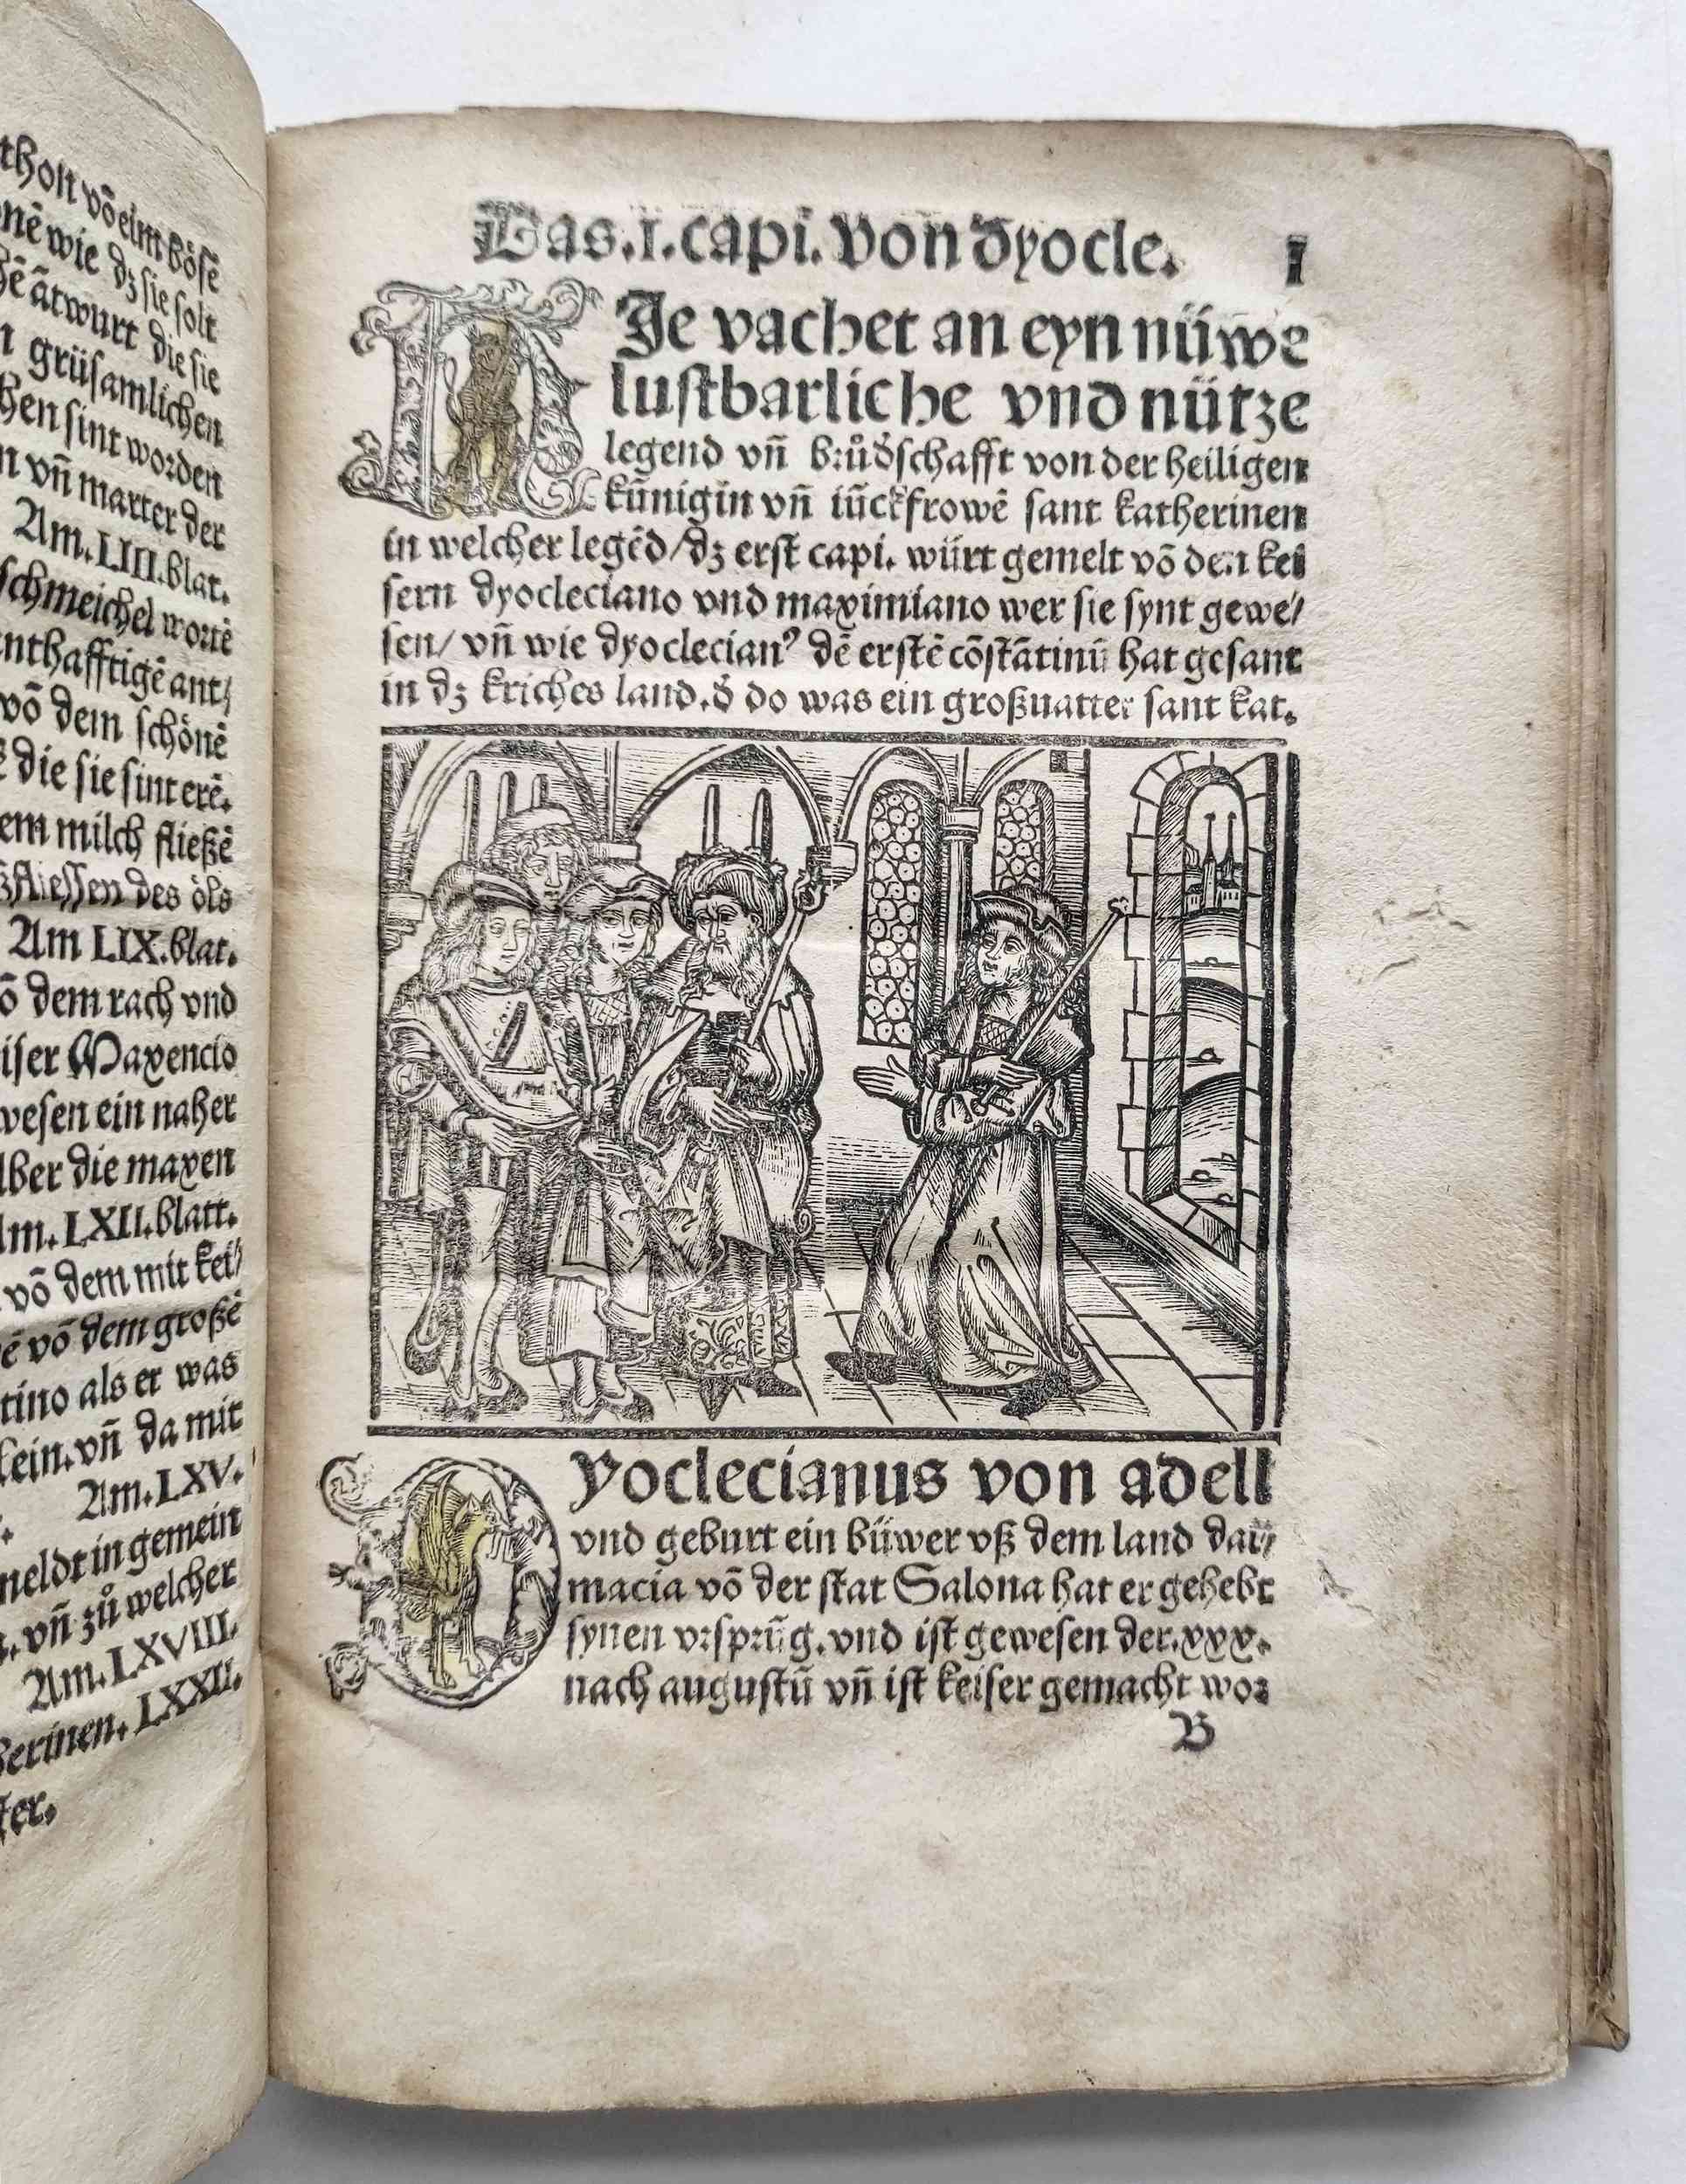 thon võ eim bösẽ
nẽ wie dʒ sie solt
ẽ ãtwurt die sie
n grüsamlichen
hen sint worden
n vñ marter der
Am. LIII. blat.
schmeichel wortẽ
nthafftigẽ ant/
võ dem schönẽ
die sie sint erẽ.
em milch fließẽ
fliessen des öls
Am LIX. blat.
õ dem rach vnd
iser Maxencio
wesen ein naher
lber die maxen
Am. LXII. blatt.
võ dem mit kei/
ẽ võ dem großẽ
tino als er was
kein. vñ da mit
Am. LXV.
meldt in gemein
. vñ zů welcher
Am. LXVIII.
herinen. LXXII.
ter.
Das. I. capi. von dyocle. I
HJe vachet an eyn nüwe
lustbarliche vnd nütze
legend vñ brůdʼschafft von der heiligen
künigin vñ iũckfrowẽ sant katherinen
in welcher legẽd / dʒ erst capi. würt gemelt võ den kei
sern dyocleciano vnd maximiano wer sie synt gewe/
sen / vñ wie dyoclecianꝰ dẽ erstẽ cõstãtinũ hat gesant
in dʒ kriches land. dʼ do was ein großuatter sant kat.
DYoclecianus von adell
vnd geburt ein büwer vß dem land dal/
macia võ der stat Salona hat er gehebt
synen vrsprũg. vnd ist gewesen der. xxx.
nach augustũ vñ ist keiser gemacht wor
B